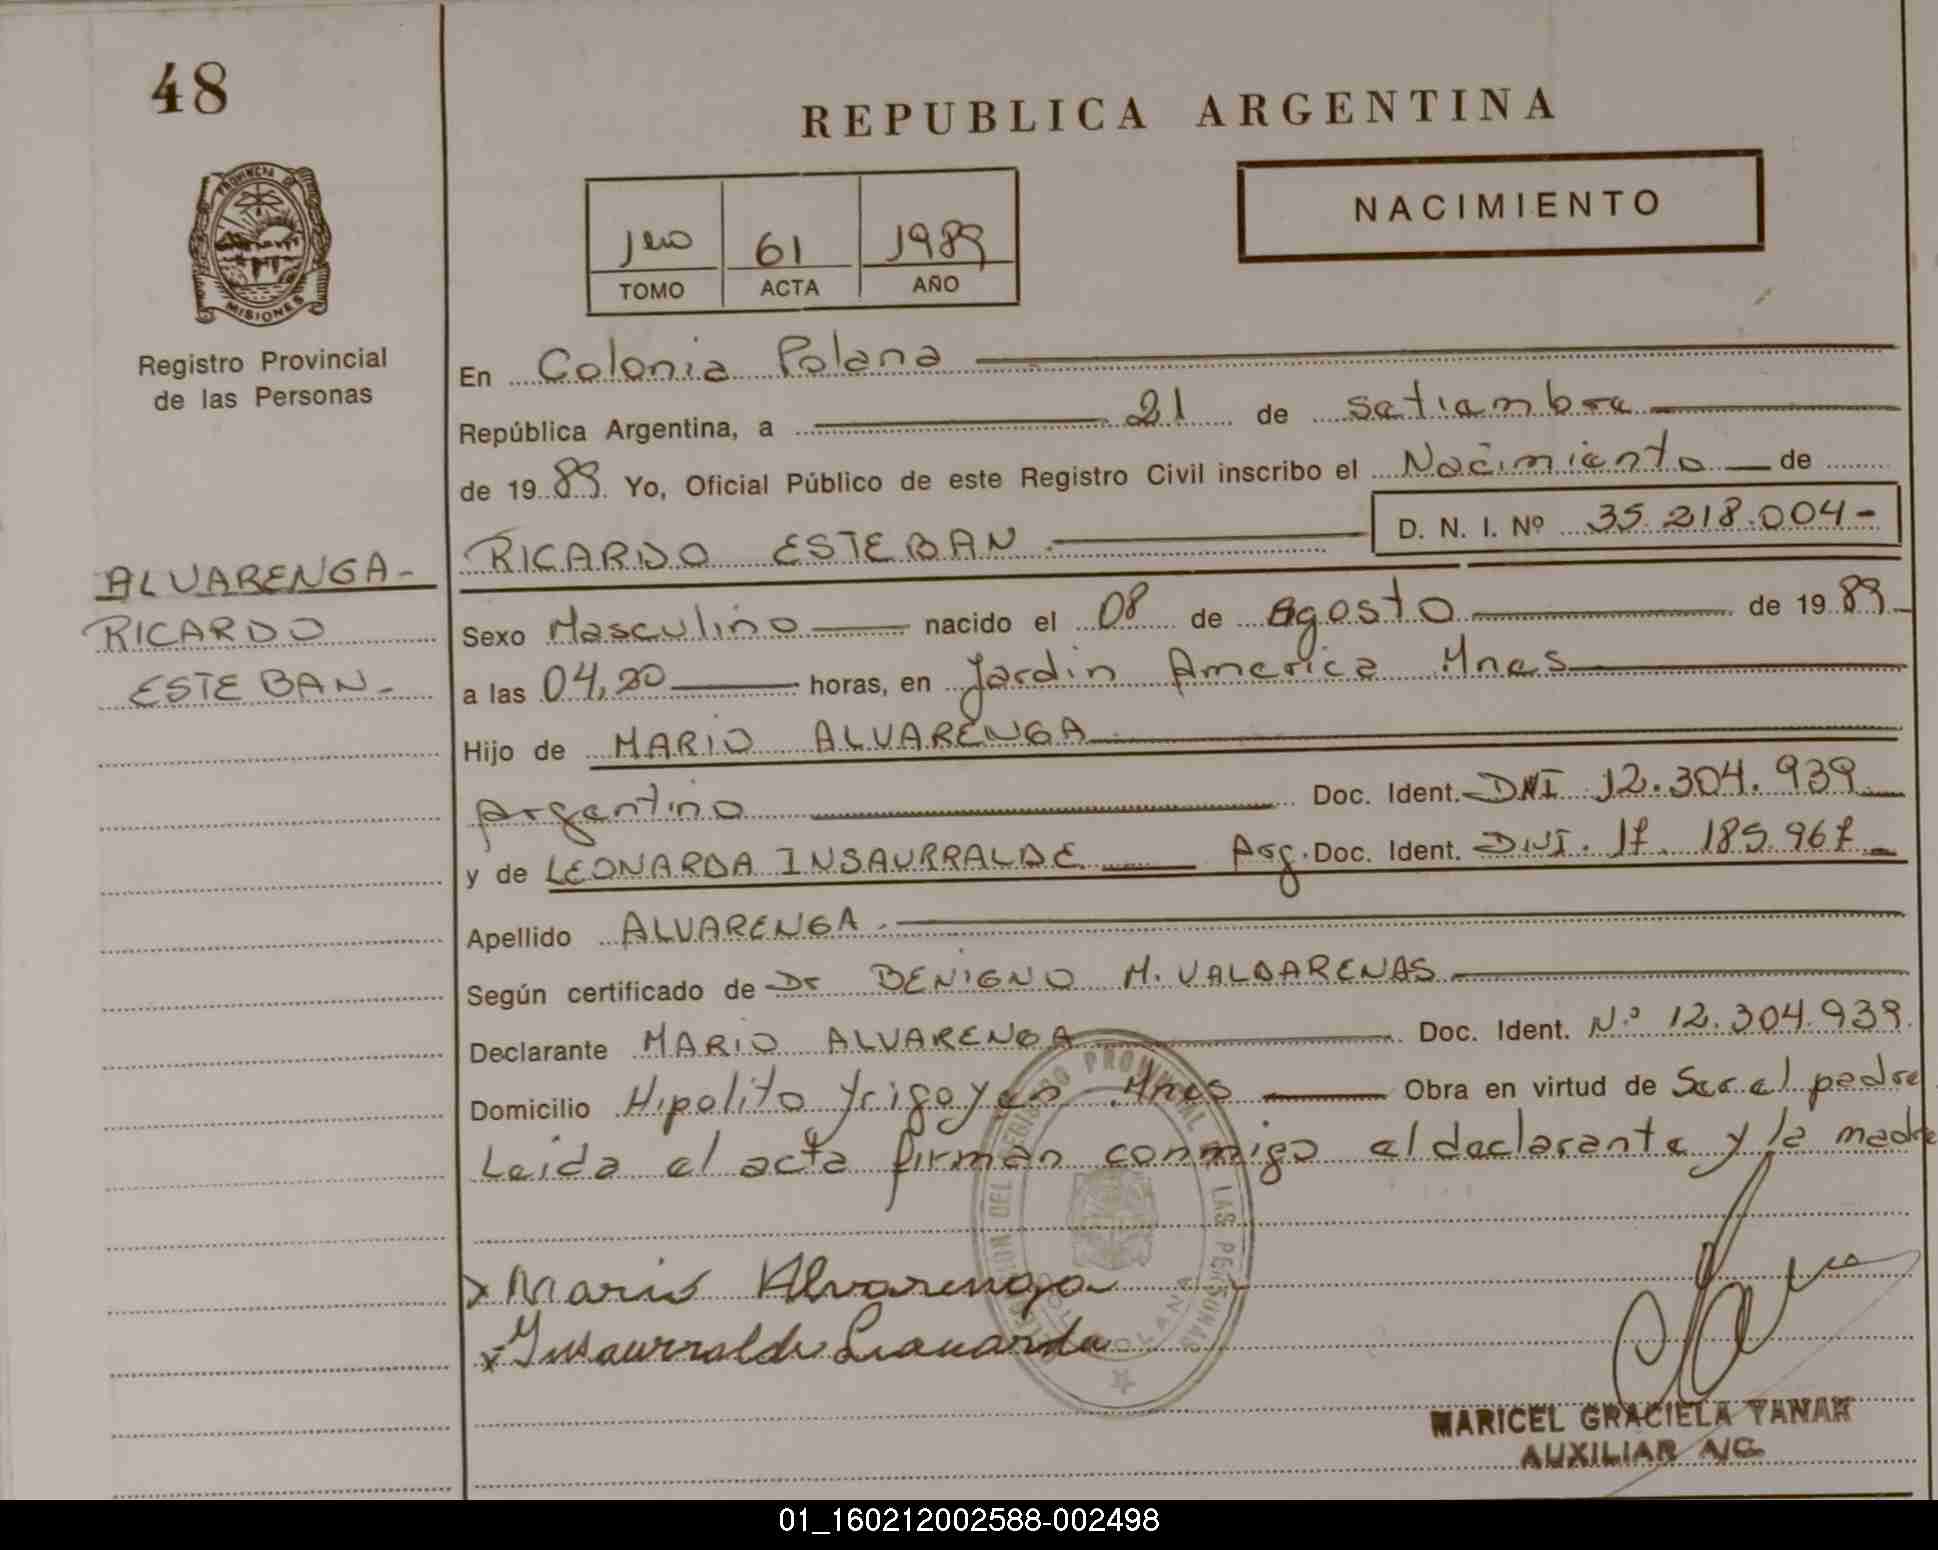 48
REPUBLICA ARGENTINA
PROVINCIA DE
MISIONES
Registro Provincial
de las Personas
1ero 61 1989
TOMO ACTA AÑO
NACIMIENTO
En Colonia Polana
República Argentina, a 21 de setiembre
de 1989. Yo, Oficial Público de este Registro Civil inscribo el Nacimiento de
RICARDO ESTEBAN D. N. I. Nº 35.218.004-
ALVARENGA-
RICARDO
ESTEBAN-
Sexo Masculino nacido el 08 de Agosto de 1989
a las 04,20 horas, en Jardin America Mnes
Hijo de MARIO ALVARENGA
Argentino Doc. Ident. DNI 12.304.939
y de LEONARDA INSAURRALDE Arg. Doc. Ident. DNI. 17.185.967
Apellido ALVARENGA.
Según certificado de Dr BENIGNO M. VALDARENAS
Declarante MARIO ALVARENGA Doc. Ident. Nº 12.304.939.
Domicilio Hipolito Yrigoyen Mnes Obra en virtud de Ser el padre
Leida el acta firman conmigo el declarante y la madre
x Mario Alvarenga
x Insaurralde Leonarda
MARICEL GRACIELA TANAK
AUXILIAR A/C.
01_160212002588-002498